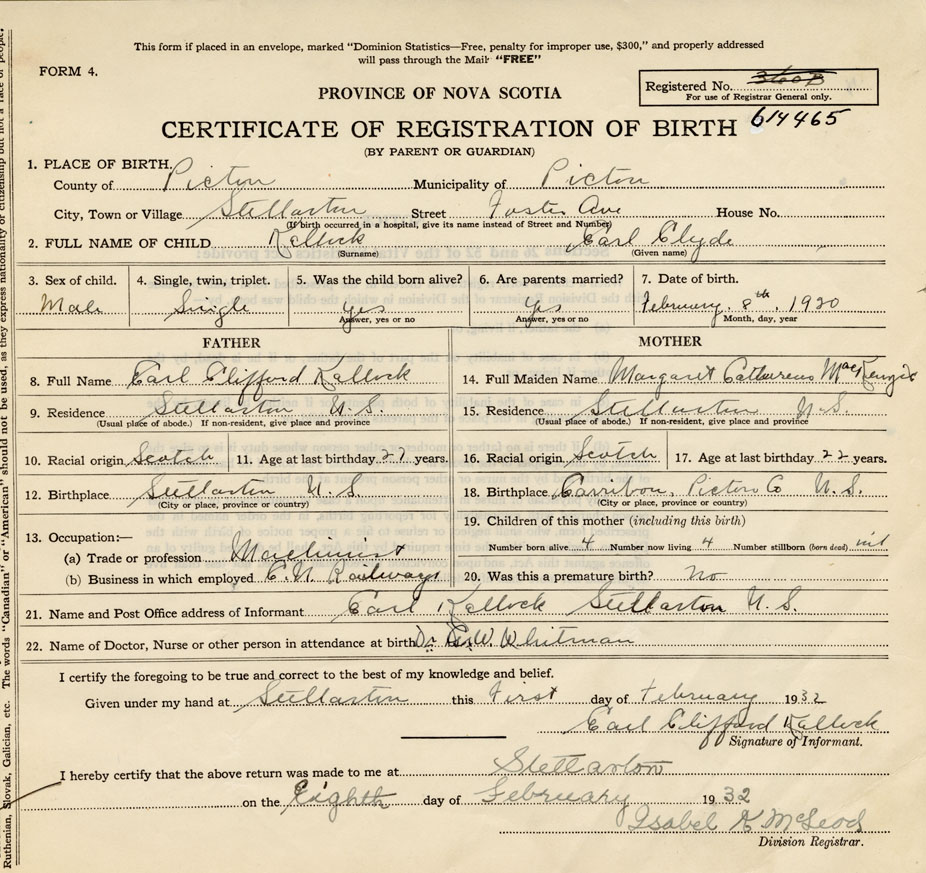 This form if placed in an envelope, marked "Dominion Statistics—Free, penalty for improper use, $300," and properly addressed
will pass through the Mail "FREE"
FORM 4.
Registered No.
For use of Registrar General only.
PROVINCE OF NOVA SCOTIA
614465
CERTIFICATE OF REGISTRATION OF BIRTH
(BY PARENT OR GUARDIAN)
1. PLACE OF BIRTH.
County of Picton Municipality of Picton
City, Town or Village Stellarton Street Foster Ave House No.
(If birth occurred in a hospital, give its name instead of Street and Number)
2. FULL NAME OF CHILD Kellock Earl Clyde
(Surname) (Given name)
3. Sex of child. 4. Single, twin, triplet. 5. Was the child born alive? 6. Are parents married? 7. Date of birth.
Male Single yes yes February. 8th, 1920
Answer, yes or no Answer, yes or no Month, day, year
FATHER MOTHER
8. Full Name Earl Clifford Kellock 14. Full Maiden Name Margaret MacKenzie
9. Residence Stellarton N.S. 15. Residence Stellarton N.S.
(Usual place of abode.) If non-resident, give place and province (Usual place of abode.) If non-resident, give place and province
10. Racial origin Scotch 11. Age at last birthday 27 years. 16. Racial origin Scotch 17. Age at last birthday 22 years.
12. Birthplace Stellarton N.S. 18. Birthplace Carribou, Picton Co N.S.
(City or place, province or country) (City or place, province or country)
19. Children of this mother (including this birth)
13. Occupation:—
(a) Trade or profession Machinist Number born alive 4 Number now living 4 Number stillborn (born dead) nil
(b) Business in which employed C.N. Railways 20. Was this a premature birth? No
21. Name and Post Office address of Informant Earl Kellock Stellarton N.S.
22. Name of Doctor, Nurse or other person in attendance at birth Dr. W. Whitman
I certify the foregoing to be true and correct to the best of my knowledge and belief.
Given under my hand at Stellarton this First day of February 1932
Earl Clifford Kellock
Signature of Informant.
I hereby certify that the above return was made to me at Stellarton
on the Eighth day of February 1932
Isabel K McLeod
Division Registrar.
Ruthenian, Slovak, Galician, etc. The words "Canadian" or "American" should not be used, as they express nationality or citizenship but not a race of people.